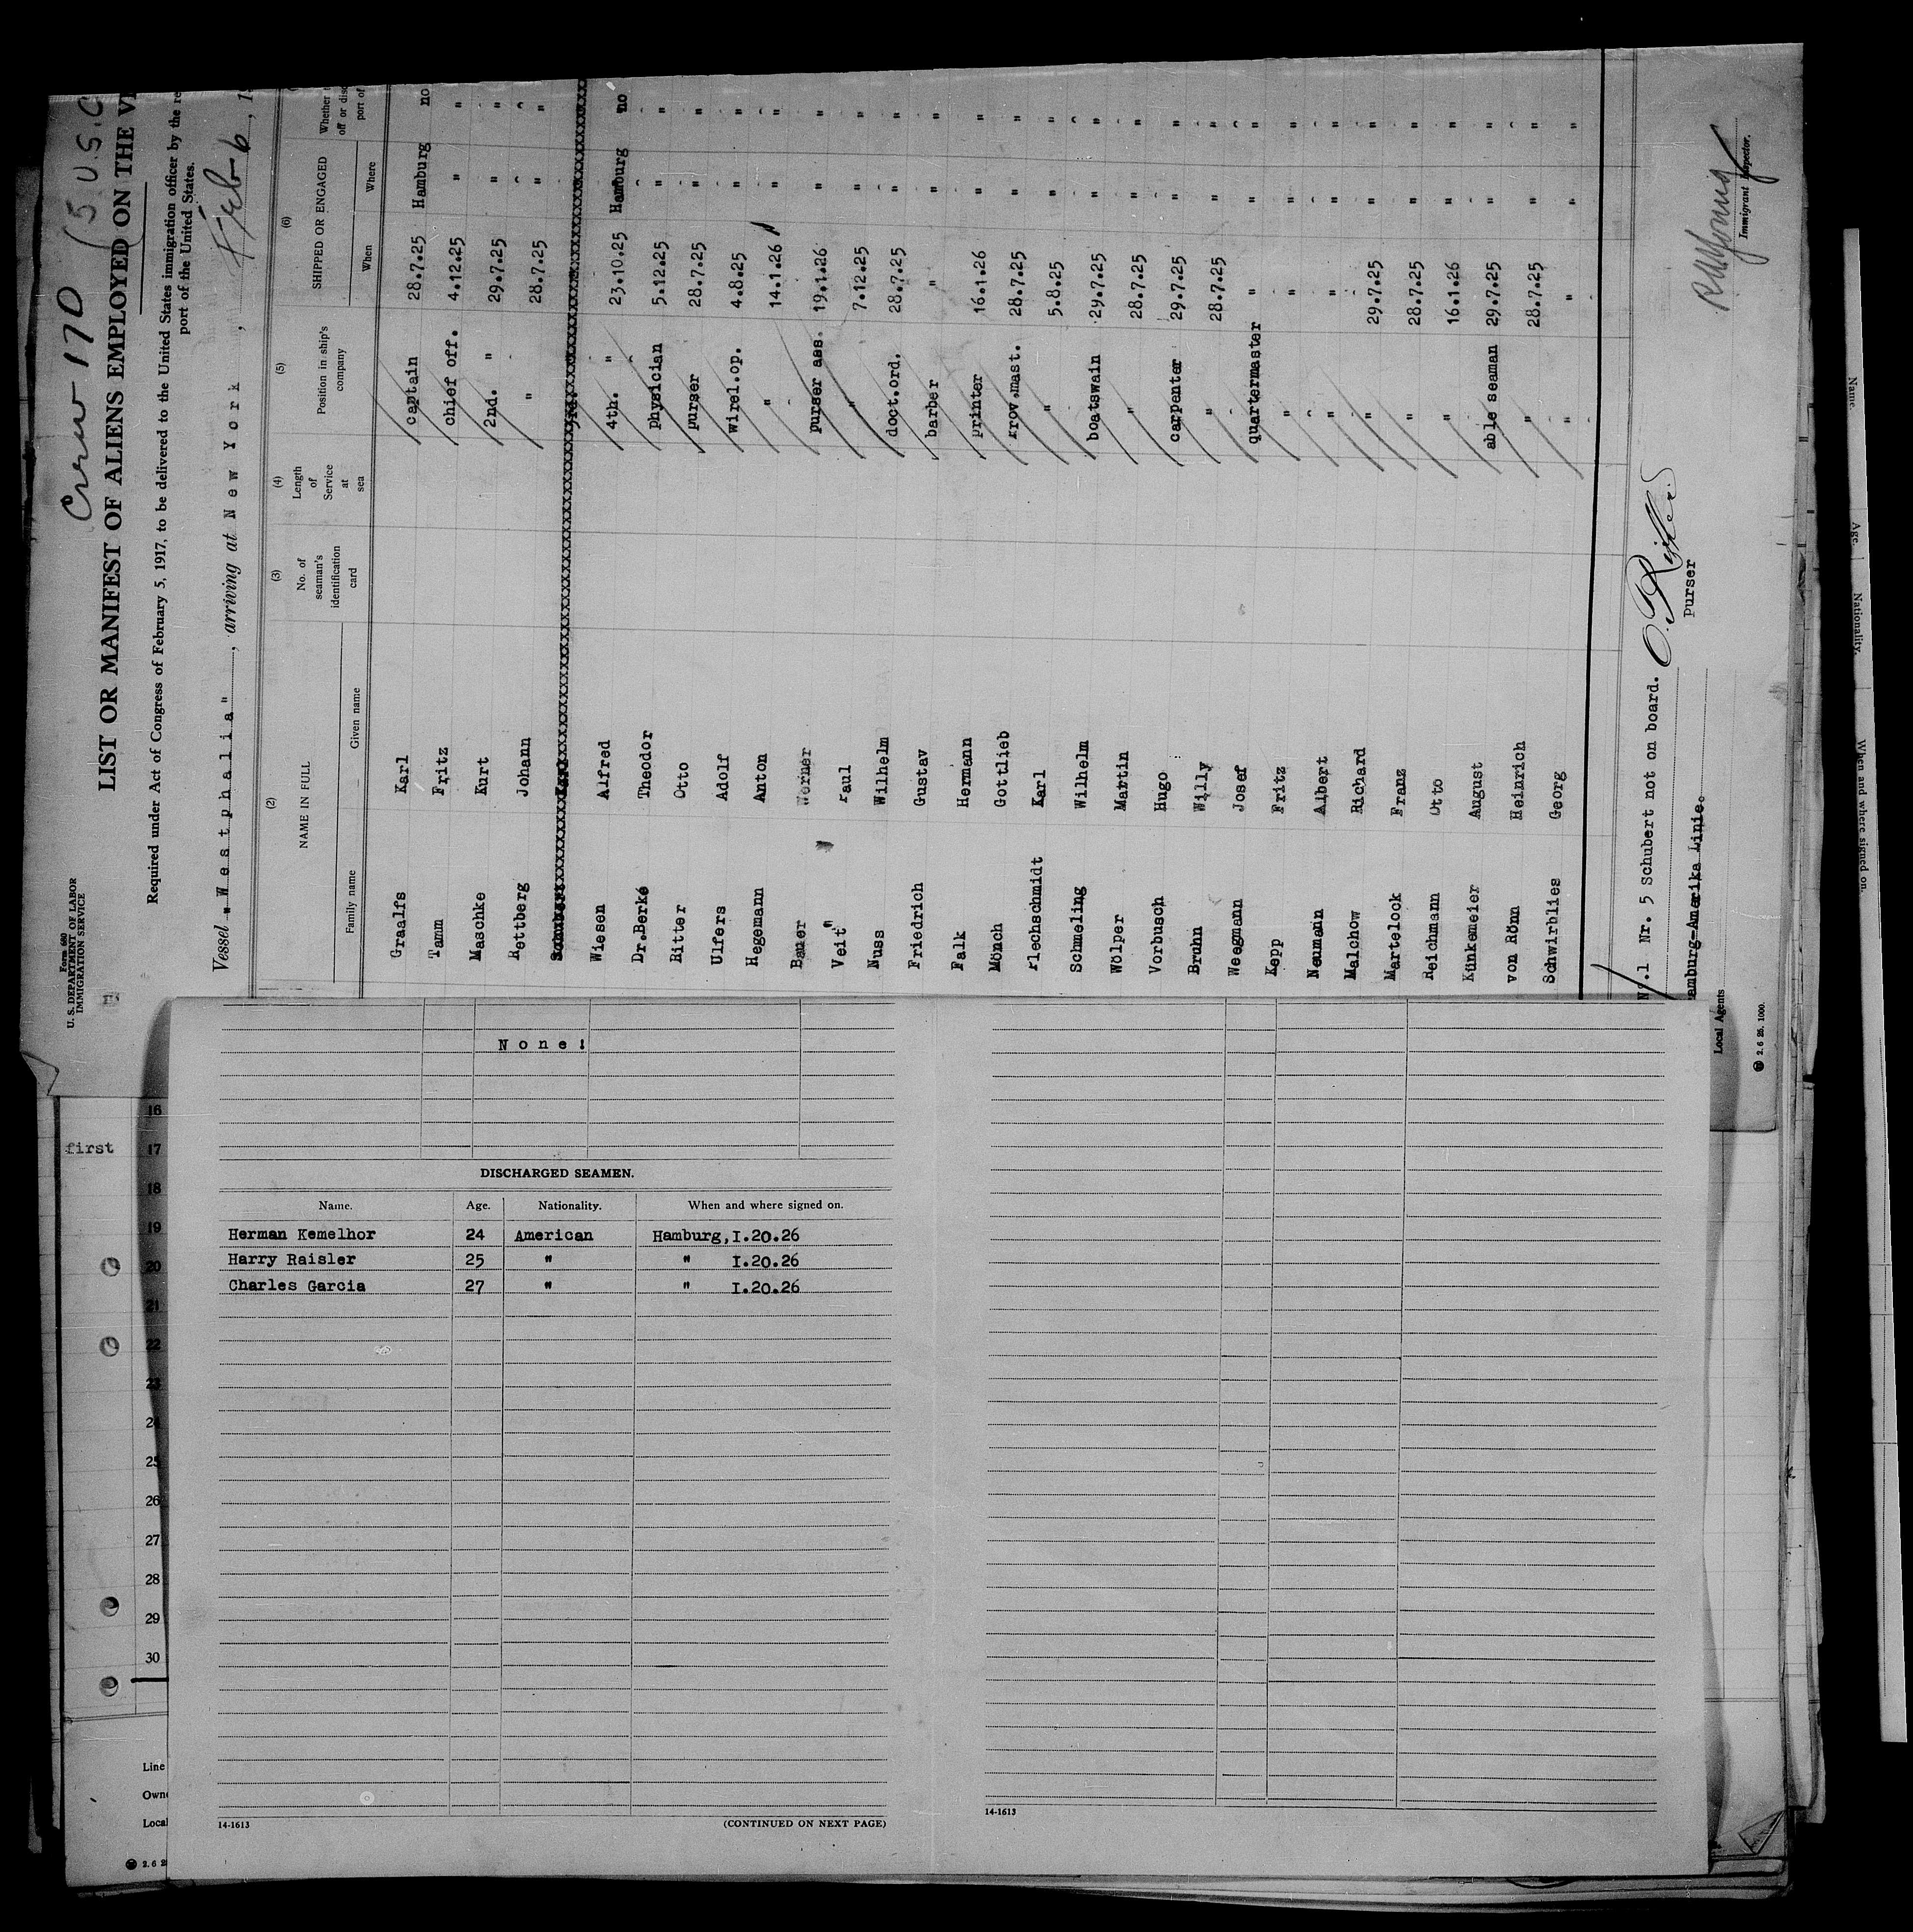 Form 680
U. S. DEPARTMENT OF LABOR
IMMIGRATION SERVICE
Crew 170 (5 U.S.C
LIST OR MANIFEST OF ALIENS EMPLOYED ON THE
Required under Act of Congress of February 5, 1917, to be delivered to the United States immigration officer by the
port of the United States.
Vessel "Westphalia", arriving at New York, Feb 6, 1
(2) (3) (4) (5) (6)
NAME IN FULL No. of seaman's identification card Length of Service at sea Position in ship's company SHIPPED OR ENGAGED Whether
off or
port of
Family name Given name When Where
Graalfs Karl captain 28.7.25 Hamburg no
Tamm Fritz chief off. 4.12.25 " "
Maschke Kurt 2nd. " 29.7.25 " "
Rettberg Johann " 28.7.25 " "
Wiesen Alfred 4th. " 23.10.25 Hamburg no
Dr.Berké Theodor physician 5.12.25 " "
Ritter Otto purser 28.7.25 " "
Ulfers Adolf wirel.op. 4.8.25 " "
Hegemann Anton " 14.1.26 " "
Bauer Werner purser ass. 19.1.26 " "
Veit Paul " 7.12.25 " "
Nuss Wilhelm doct.ord. 28.7.25 " "
Friedrich Gustav barber " " "
Falk Hermann printer 16.1.26 " "
Mönch Gottlieb prov.mast. 28.7.25 " "
Flechschmidt Karl " 5.8.25 " "
Schmeling Wilhelm boatswain 29.7.25 " "
Wölper Martin " 28.7.25 " "
Vorbusch Hugo carpenter 29.7.25 " "
Bruhn Willy " 28.7.25 " "
Weegmann Josef quartermaster " " "
Kepp Fritz " " " "
Neumann Albert " " " "
Malchow Richard " 29.7.25 " "
Martelock Franz " 28.7.25 " "
Reichmann Otto " 16.1.26 " "
Künkemeier August able seaman 29.7.25 " "
von Rönn Heinrich " 28.7.25 " "
Schwirblies Georg " " " "
No.1 Nr. 5 Schubert not on board. O. Ritter
purser
Hamburg-Amerika Linie.
Local Agents
Immigrant Inspector.
2.6 25. 1000.
None!
DISCHARGED SEAMEN.
Name. Age. Nationality. When and where signed on.
Herman Kemelhor 24 American Hamburg,I.20.26
Harry Raisler 25 " " I.20.26
Charles Garcia 27 " " I.20.26
14-1613 (CONTINUED ON NEXT PAGE)
14-1613
first
16
17
18
19
20
21
22
23
24
25
26
27
28
29
30
Line
Own
Local
2.6 2
Name.
Age.
Nationality.
When and where signed on.